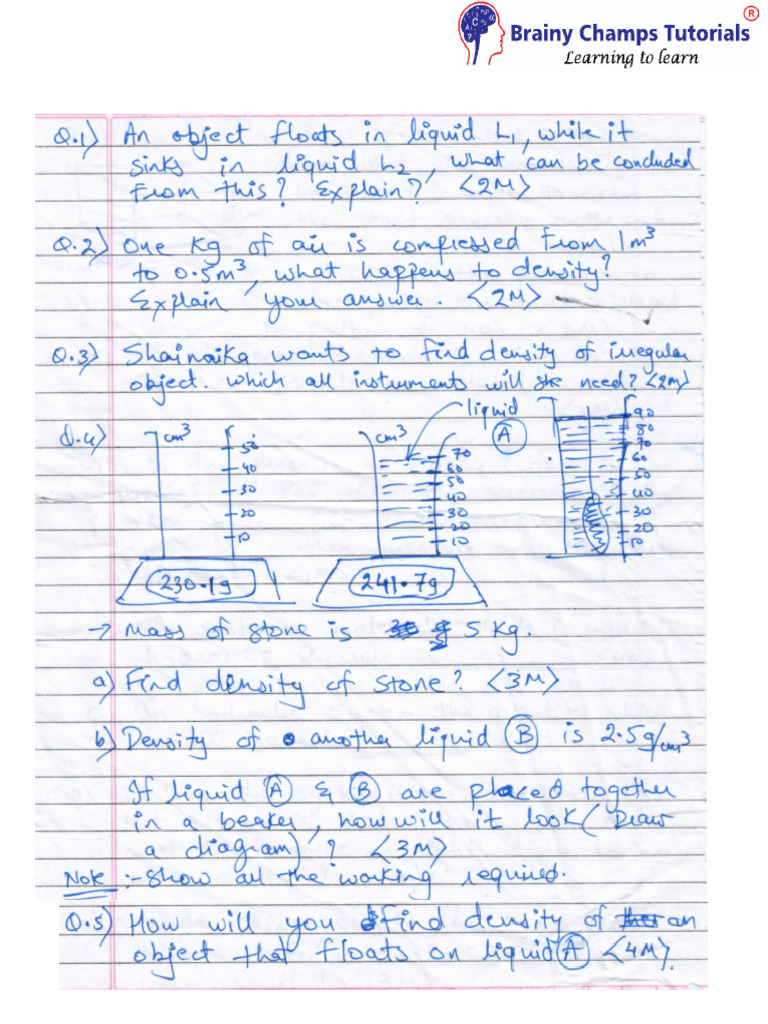 ®
Brainy Champs Tutorials
Learning to learn
Q.1) An object floats in liquid L1, while it
sinks in liquid L2, what can be concluded
from this? Explain? <2M>
Q.2) One kg of air is compressed from 1m³
to 0.5m³, what happens to density?
Explain your answer. <2M>
Q.3) Shainaika wants to find density of irregular
object. which all instruments will she need? <2M>
liquid
Q.4) cm³ 50 40 30 20 10
cm³ 70 60 50 40 30 20 10
A
90 80 70 60 50 40 30 20 10
230.1g 241.7g
→ Mass of stone is 5 kg.
a) Find density of stone? <3M>
b) Density of another liquid B is 2.5g/cm³
If liquid A & B are placed together
in a beaker, how will it look (Draw
a diagram)? <3M>
Note :- Show all the working required.
Q.5) How will you find density of an
object that floats on liquid A <4M>.